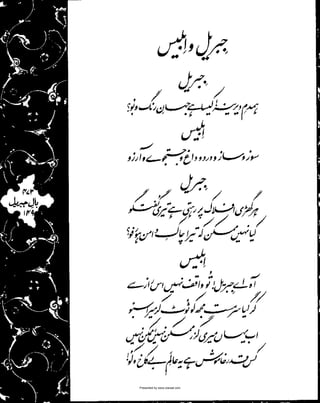 جبریل و ابلیس
جبریل
ہمدمِ دیرینہ! کیسا ہے جہانِ رنگ و بو؟
ابلیس
سوز و ساز و درد و داغ و جستجوے و آرزو
جبریل
ہر گھڑی افلاک پر رہتی ہے تیری گفتگو
کیا نہیں ممکن کہ تیرا چاکِ دامن ہو رفو؟
ابلیس
آہ اے جبریل! تو واقف نہیں اس راز سے
کر گیا سرمست مجھ کو ٹوٹ کر میرا سبو
اب یہاں میری گزر ممکن نہیں، ممکن نہیں
کس قدر خاموش ہے یہ عالمِ بے کاخ و کو!
۴۷۳
بالِ جبریل
۱۴۹
Presented by www.ziaraat.com